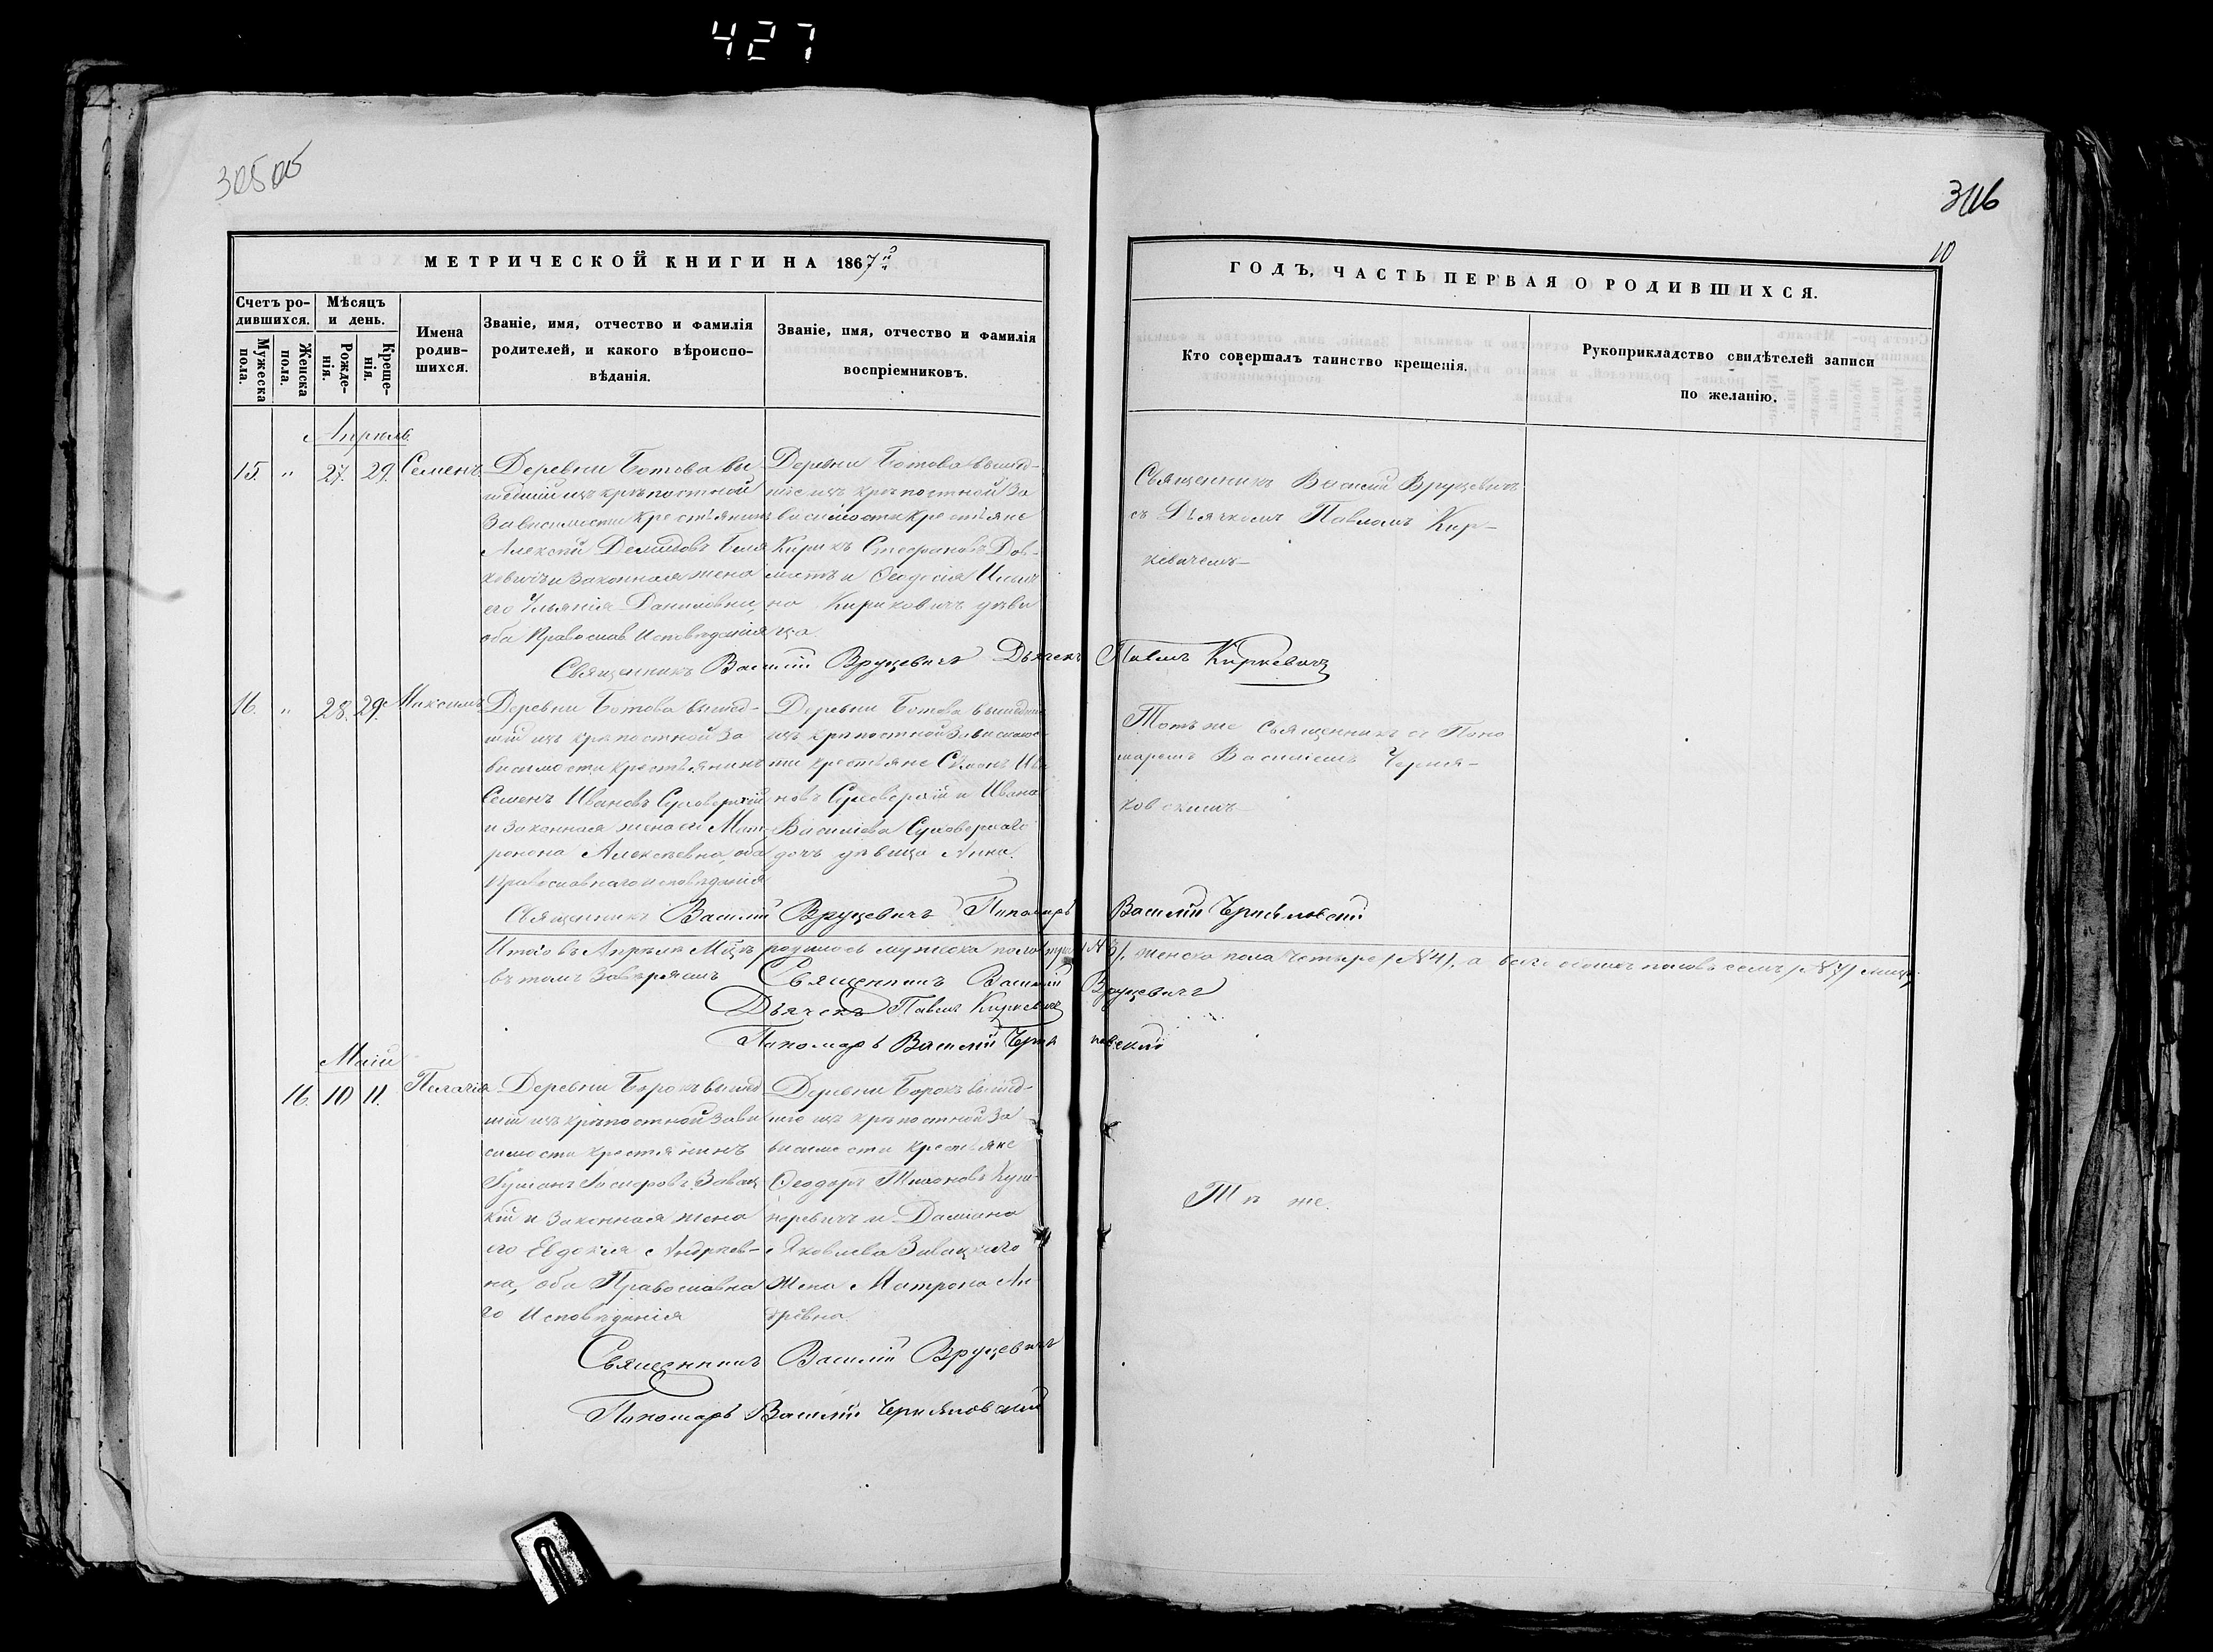 427
306
10
МЕТРИЧЕСКОЙ КНИГИ НА 1867й
Счетъ ро-
дившихся.
Мужеска
пола.
Женска
пола.
Мѣсяцъ
и день.
Рожде-
нія.
Креще-
нія.
Имена
родив-
шихся.
Званіе, имя, отчество и фамилія
родителей, и какого вѣроиспо-
вѣданія.
Званіе, имя, отчество и фамилія
воспріемниковъ.
ГОДЪ, ЧАСТЬ ПЕРВАЯ О РОДИВШИХСЯ.
Кто совершалъ таинство крещенія.
Рукоприкладство свидѣтелей записи
по желанію.
Апрѣль
15. " 27. 29. Семенъ
Деревни Ботова вы
шедшій изъ крѣпостной
зависимости крестьянинъ
Алексѣй Демидовъ
ковичъ и законная жена
его Ульянія Даниловна,
оба Православ. Исповѣданія
Деревни Ботова вышед-
шіе изъ крѣпостной за
висимости крестьяне
Кирикъ Стефановъ
и Феодосія
на Кириковичъ дѣви
ца.
Священникъ Василій Вруцевичъ
съ Дьячкомъ Павломъ Кир-
кевичемъ
Священникъ Василій Вруцевичъ Дьячекъ Павелъ Киркевичъ
16. " 28. 29. Максимъ
Деревни Ботова вышед-
шій изъ крѣпостной за
висимости крестьянинъ
Семенъ Ивановъ Суховерскій
и законная жена его Мат-
рона Алексѣевна, оба
Православнаго исповѣданія
Деревни Ботова вышедшіе
изъ крѣпостной зависимос-
ти крестьяне Ива
новъ Суховерскій и Ивана
Василіева Суховерскаго
дочь дѣвица Анна.
Тотъ же Священникъ съ Поно
маремъ Василіемъ Черня-
ковскимъ
Священникъ Василій Вруцевичъ Пономарь Василій Черняковскій
Итого въ Апрѣлѣ М-цѣ родилось мужеска пола три /№3/, женска пола четыре /№4/, а всего обоихъ половъ семь /№7/
въ томъ завѣряемъ Священникъ Василій Вруцевичъ
Дьячекъ Павелъ Киркевичъ
Пономарь Василій Черняковскій
Май
16. 10 11. Пелагія
Деревни Борокъ вышед
шій изъ крѣпостной зави
симости крестьянинъ
кій и законная жена
его Евдокія Андреев-
на, оба Православна
го Исповѣданія
Деревни Борокъ вышед-
шіе изъ крѣпостной за
висимости крестьяне
Феодоръ Тихоновъ
и Даміана
Яковлева Завацкаго
жена Матрона Ан
дреевна.
Тѣ же.
Священникъ Василій Вруцевичъ
Пономарь Василій Черняковскій